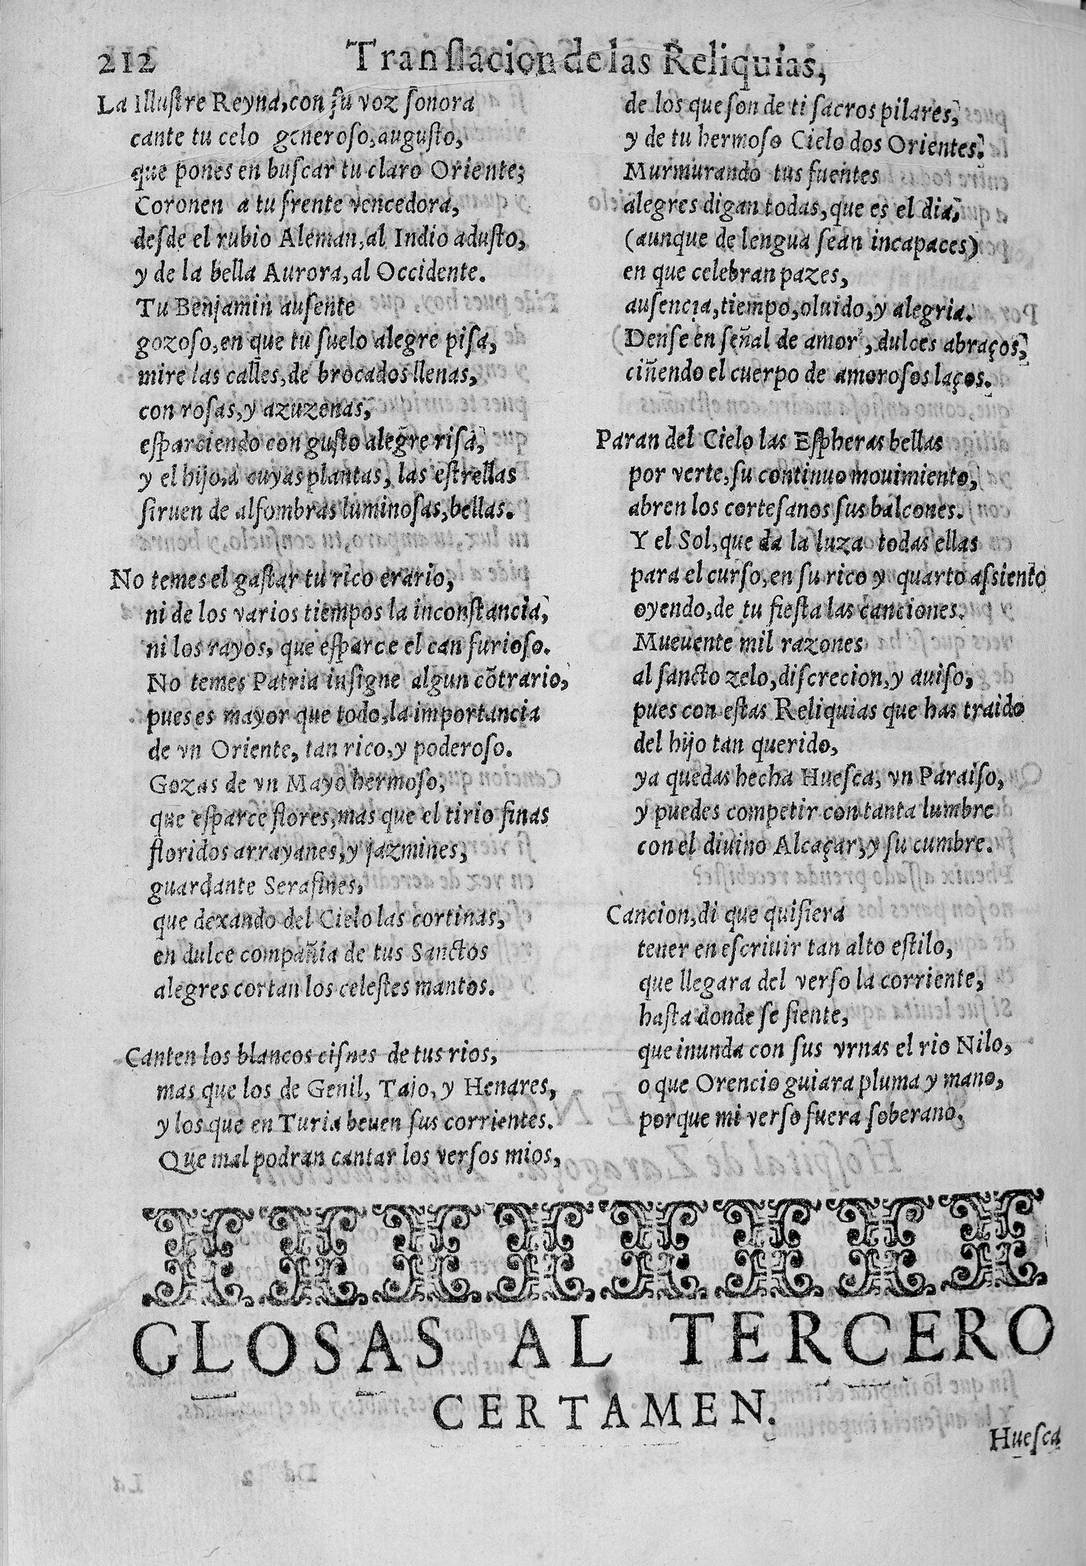 212 Translacion de las Reliquias,
La Illustre Reyna, con su voz sonora
cante tu celo generoso, augusto,
que pones en buscar tu claro Oriente;
Coronen a tu frente vencedora,
desde el rubio Aleman, al Indio adusto,
y de la bella Aurora, al Occidente.
Tu Benjamin ausente
gozoso, en que tu suelo alegre pisa,
mire las calles, de brocados llenas,
con rosas, y azuzenas,
esparciendo con gusto alegre risa,
y el hijo, a cuyas plantas, las estrellas
siruen de alfombras luminosas, bellas.
No temes el gastar tu rico erario,
ni de los varios tiempos la inconstancia,
ni los rayos, que esparce el can furioso.
No temes Patria insigne algun cõtrario,
pues es mayor que todo, la importancia
de vn Oriente, tan rico, y poderoso.
Gozas de vn Mayo hermoso,
que esparce flores, mas que el tirio finas
floridos arrayanes, y jazmines,
guardante Serafines,
que dexando del Cielo las cortinas,
en dulce compañia de tus Sanctos
alegres cortan los celestes mantos.
Canten los blancos cisnes de tus rios,
mas que los de Genil, Tajo, y Henares,
y los que en Turia beuen sus corrientes.
Que mal podran cantar los versos mios,
de los que son de ti sacros pilares,
y de tu hermoso Cielo dos Orientes.
Murmurando tus fuentes
alegres digan todas, que es el dia,
(aunque de lengua sean incapaces)
en que celebran pazes,
ausencia, tiempo, oluido, y alegria.
Dense en señal de amor, dulces abraços,
ciñendo el cuerpo de amorosos laços.
Paran del Cielo las Espheras bellas
por verte, su continuo mouimiento,
abren los cortesanos sus balcones.
Y el Sol, que da la luz a todas ellas
para el curso, en su rico y quarto assiento
oyendo, de tu fiesta las canciones.
Mueuente mil razones
al sancto zelo, discrecion, y auiso,
pues con estas Reliquias que has traido
del hijo tan querido,
ya quedas hecha Huesca, vn Paraiso,
y puedes competir con tanta lumbre
con el diuino Alcaçar, y su cumbre.
Cancion, di que quisiera
tener en escriuir tan alto estilo,
que llegara del verso la corriente,
hasta donde se siente,
que inunda con sus vrnas el rio Nilo,
o que Orencio guiara pluma y mano,
porque mi verso fuera soberano,
GLOSAS AL TERCERO
CERTAMEN.
Huesca